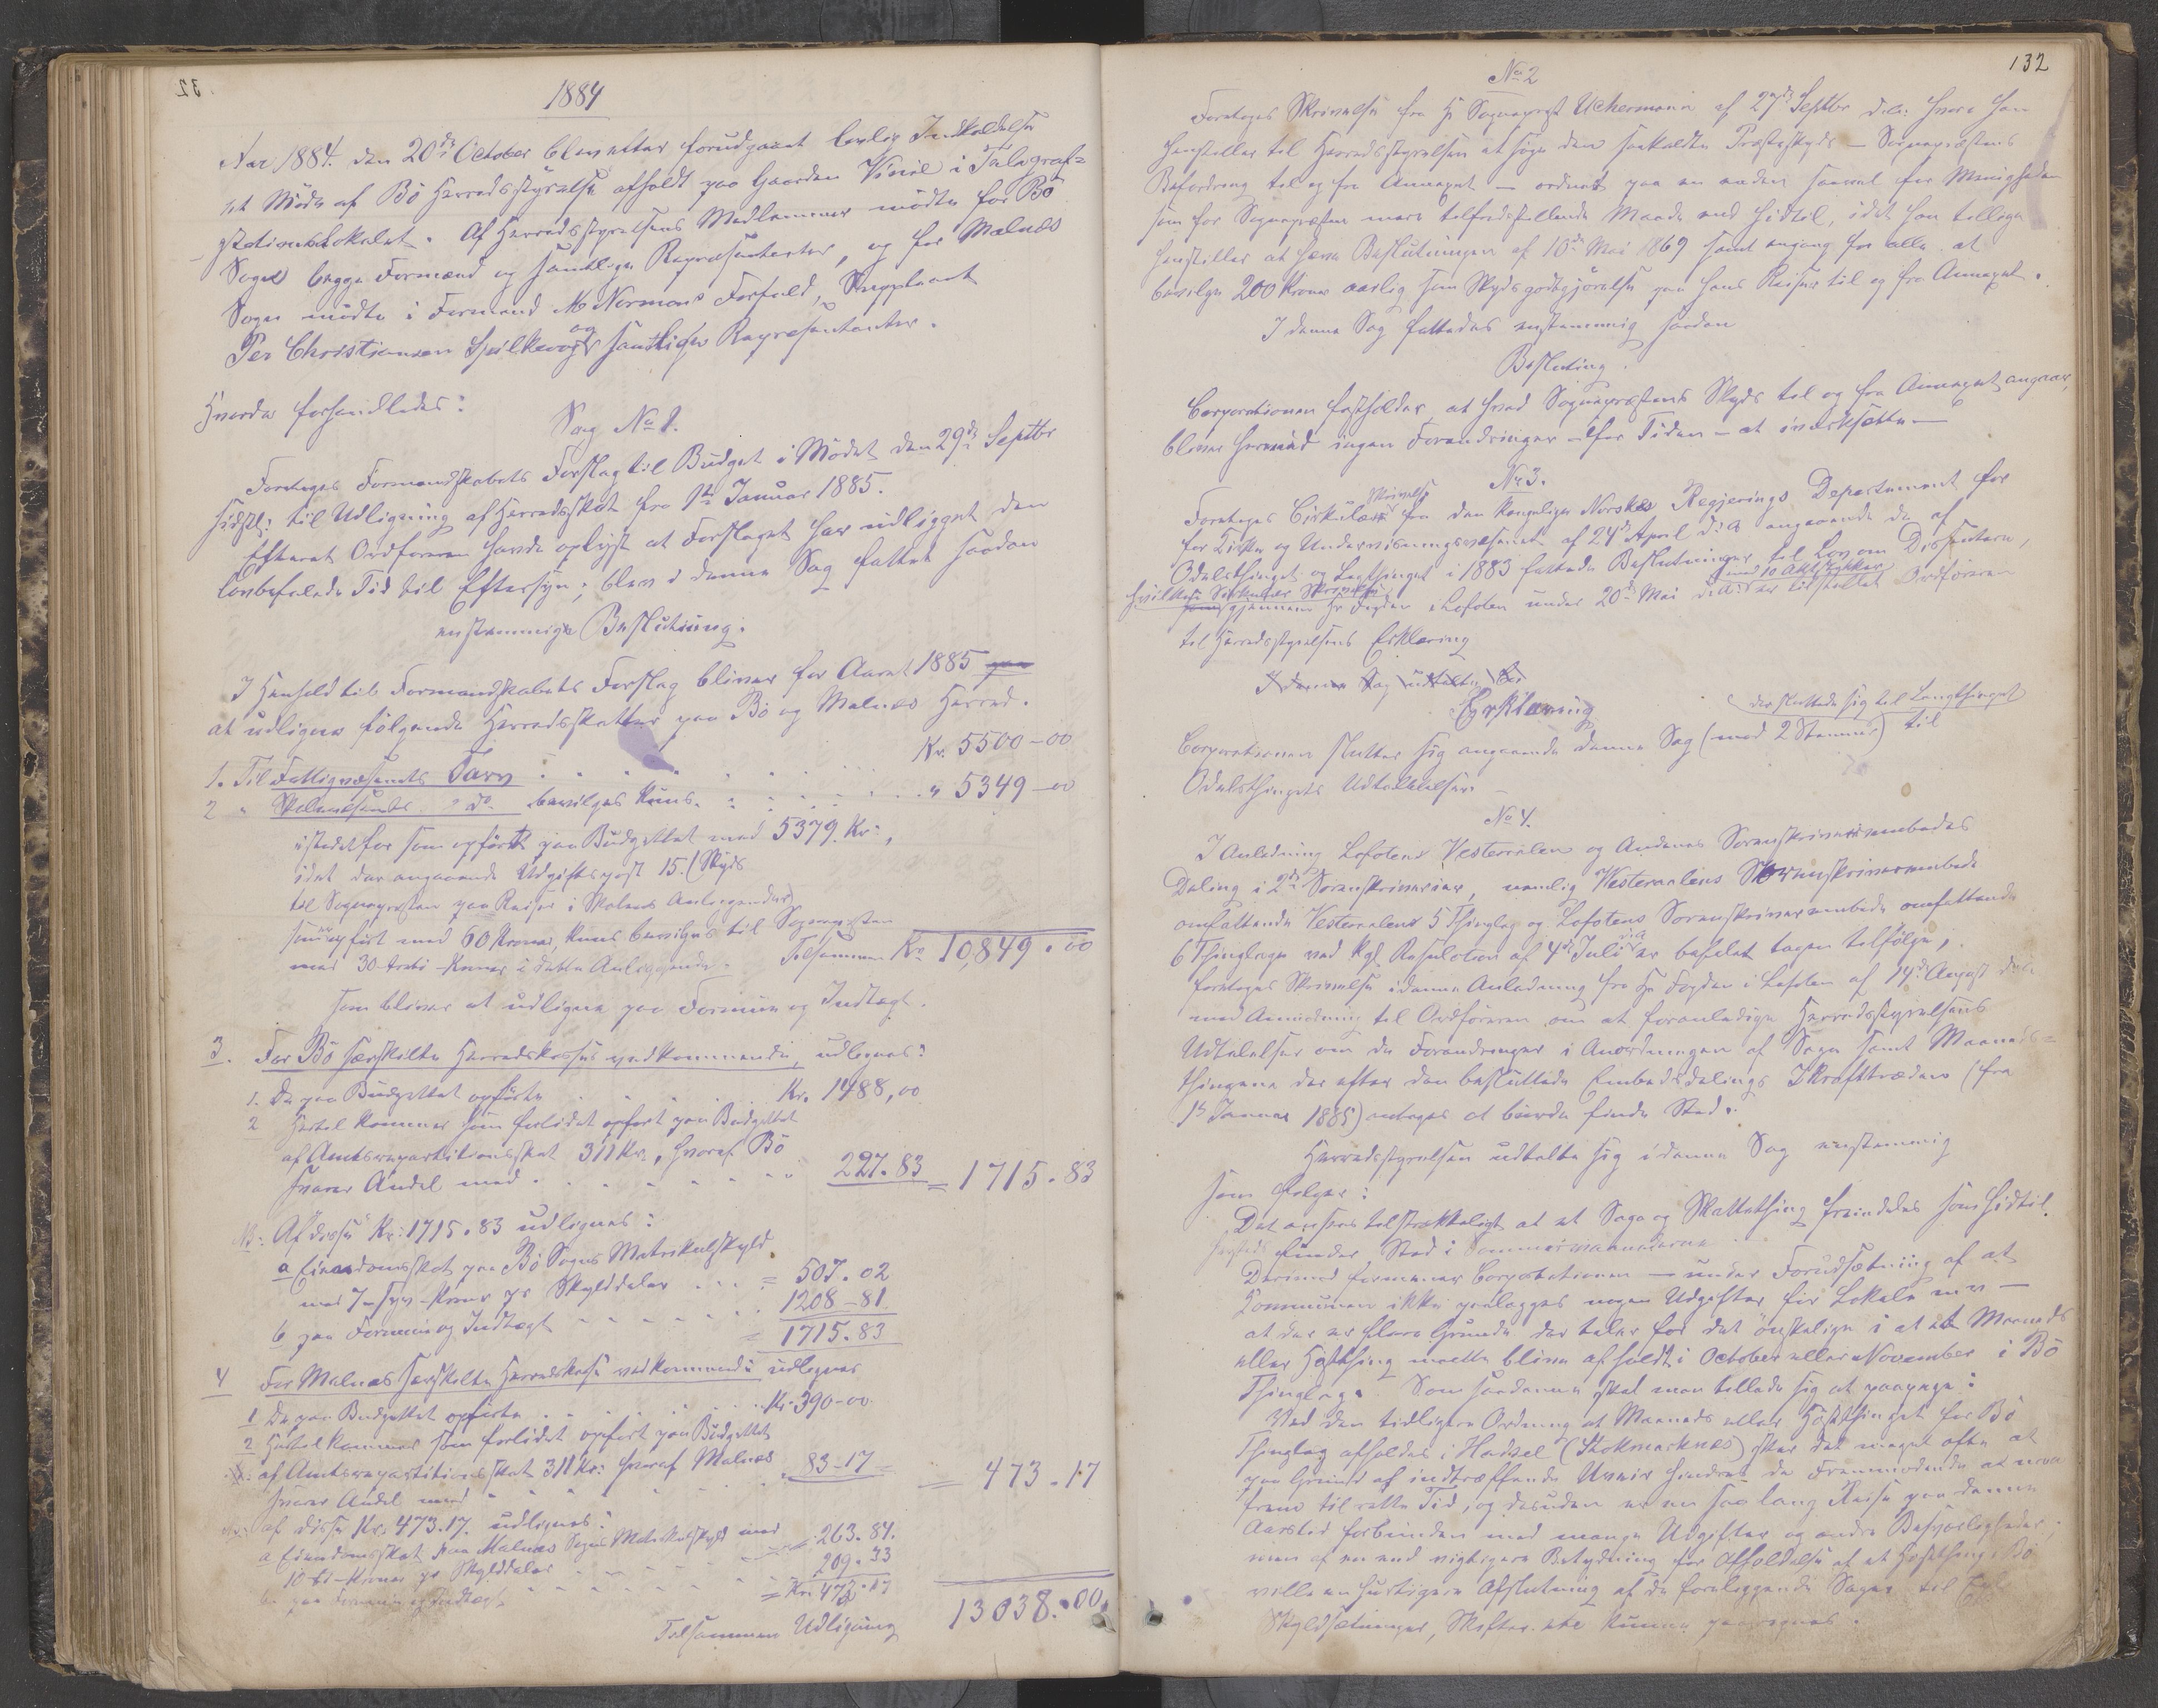 1884
Aar 1884 den 20de October blev efter forudgaaet lovlig Indkaldelse
et Møde af Bø Herredsstyrelse afholdt paa Gaarden Vinje i Telegraf=
stationslokalet. Af Herredsstyrelsens Medlemmer mødte for Bø
Sogn begge Formænd og samtlige Repræsentanter, og for Malnes
Sogn mødte i Formand M Normans Forfald, Suppleant
Per Christiansen Spilkevog og samtlige Repræsentanter.
Hvorda forhandledes:
Sag No 1.
Foretoges Formandskabets Forslag til Budget i Mødet den 29de Septbr
sidstl: til Udligning af Herredsskat fra 1te Januar 1885.
Efterat Ordføreren havde oplyst at Forslaget har udligget den
lovbefalede Tid til Eftersyn; blev i denne Sag fattet saadan
enstemmige Beslutning:
I Henhold til Formandskabets Forslag bliver for Aaret 1885
at udligne følgende Herredsskatter paa Bø og Malnes Herred.
1. Til Fattigvæsenets Tarv Kr. 5500-00
2 " Skolevæsenets " do bevilges kuns " 5349-00
istedetfor som opført paa Budgettet med 5379 Kr:,
idet den angaaende Udgiftspost 15. (Skyds
til Sognepresten paa Reiser i Skolens Anliggender)
som er opført med 60 Kroner, kuns bevilges til Sognepresten
med 30-tredi-Kroner i dette Anliggende. Tilsammen Kr 10,849.00
som bliver at udligne paa Formue og Indtægt.
3. For Bø særskilte Herredskasse vedkommende, udlignes:
1. De paa Budgettet opførte Kr. 1488,00
2 Hertil kommer som forlidet opført paa Budgettet
af Amtsrepartitionsskat 311 Kr., hvoraf Bø
svarer Andel med 227.83 = 1715.83
Af disse Kr: 1715.83 udlignes:
a Eiendomsskat paa Bø Sogns Matrikulskyld
med 7-syv-Kroner pr Skylddaler = 507.02
b paa Formue og Indtægt 1208-81
= 1715.83
4 For Malnes særskilte Herredskasse vedkommende udlignes
1 De paa Budgettet opførte Kr. 390-00.
2 Hertil kommer som forlidet opført paa Budgettet
af Amtsrepartitionsskat 311 Kr: hvoraf Malnes
svarer Andel med 83-17 = 473.17
af disse Kr. 473.17. udlignes:
a Eiendomsskat paa Malnes Sogns Matrikulskyld med
10 ti-Kroner pr Skylddaler 263.84.
b. paa Formue og Indtægt 209.33
= Kr. 473.17
Tilsammen Udligning 13038.00.
132
No 2
Foretoges Skrivelse fra Hr Sogneprest Uchermann af 27de Septbr d.A: hvori han
henstiller til Herredsstyrelsen at søge den saakaldte Præsteskyds - Sogneprestens
Befordring til og fra Annexet - ordnet paa en anden saavel for Menigheden
som for Sognepresten mere tilfredsstillende Maade end hidtil, idet han tillige
henstiller at hæve Beslutningen af 10de Mai 1869 samt engang for alle at
bevilge 200 Kroner aarlig som Skydsgodtgjørelse paa hans Reiser til og fra Annexet.
I denne Sag fattedes enstemmig saadan
Beslutning.
Corporationen fastholder, at hvad Sogneprestens Skyds til og fra Annexet angaar,
bliver hermed ingen Forandringer - for Tiden - at iverksætte -
No 3.
Foretoges Cirkulær Skrivelse fra den Kongelige Norske Regjerings Departement for
for Kirke og Undervisningsvæsenet af 24de April d.A angaaende de af
Odelsthinget og Lagthinget i 1883 fattede Beslutninger til Lov om Dissentere,
hvilken Cirkulær Skrivelse med 10 Aktstykker
gjennem Hr Fogden i Lofoten under 20de Mai d.A: er tilstillet Ordføreren
til Herredsstyrelsens Erklæring
I denne Sag udtalte sig
Erklæring
der sluttede sig til Lagthinget
Corporationen slutter sig angaaende denne Sag (med 2 Stemmer) til
Odelsthingets Udtalelser.
No 4.
I Anledning Lofotens Vesteraalen og Andenes Sorenskriverembedes
Deling i 2de Sorenskriverier, nemlig Vesteraalens Sorenskriverembede
omfattende Vesteraalens 5 Thinglag og Lofotens Sorenskriverembede omfattende
6 Thinglage ved Kgl Resolution af 4de Juli d.A er befalet tagen tilfølge,
foretoges Skrivelse i denne Anledning fra Hr Fogden i Lofoten af 14de August d.A:
med Anmodning til Ordføreren om at foranledige Herredsstyrelsens
Udtalelser om de Forandringer i Anordningen af Sage samt Maaneds=
thingene der efter den besluttede Embedsdelings Ikrafttræden (fra
1te Januar 1885) antages at burde finde Sted.
Herredsstyrelsen udtalte sig i denne Sag enstemmig
som følger:
Det ansees tilstrækkeligt at et Sage og Skattething fremdeles som hidtil
finder Sted i Sommermaanederne
Derimod formener Corporationen - under Forudsætning af at
Kommunen ikke paalægges nogen Udgifter for Lokale m.v -
at der er flere Grunde der taler for det ønskelige i at et Maaneds
eller Høstthing maatte blive afholdt i October eller November i Bø
Thinglag. Som saadanne skal man tillade sig at paapege:
Ved den tidligere Ordning at Maaneds eller Høstthinget for Bø
Thinglag afholdes i Hadsel (Stokmarknes) sker det meget ofte at
paa Grund af indtræffende Uveir hindres de Fremmødende at være
frem til rette Tid, og desuden er en saa lang Reise paa denne
Aarstid forbunden med mange Udgifter og andre Besværligheder.
men af en end vigtigere Betydning for Afholdelse af et Høstthing i Bø
ville en hurtigere Afslutning af de foreliggende Sager
Skyldsætninger, Skifter etc kunne paaregnes.